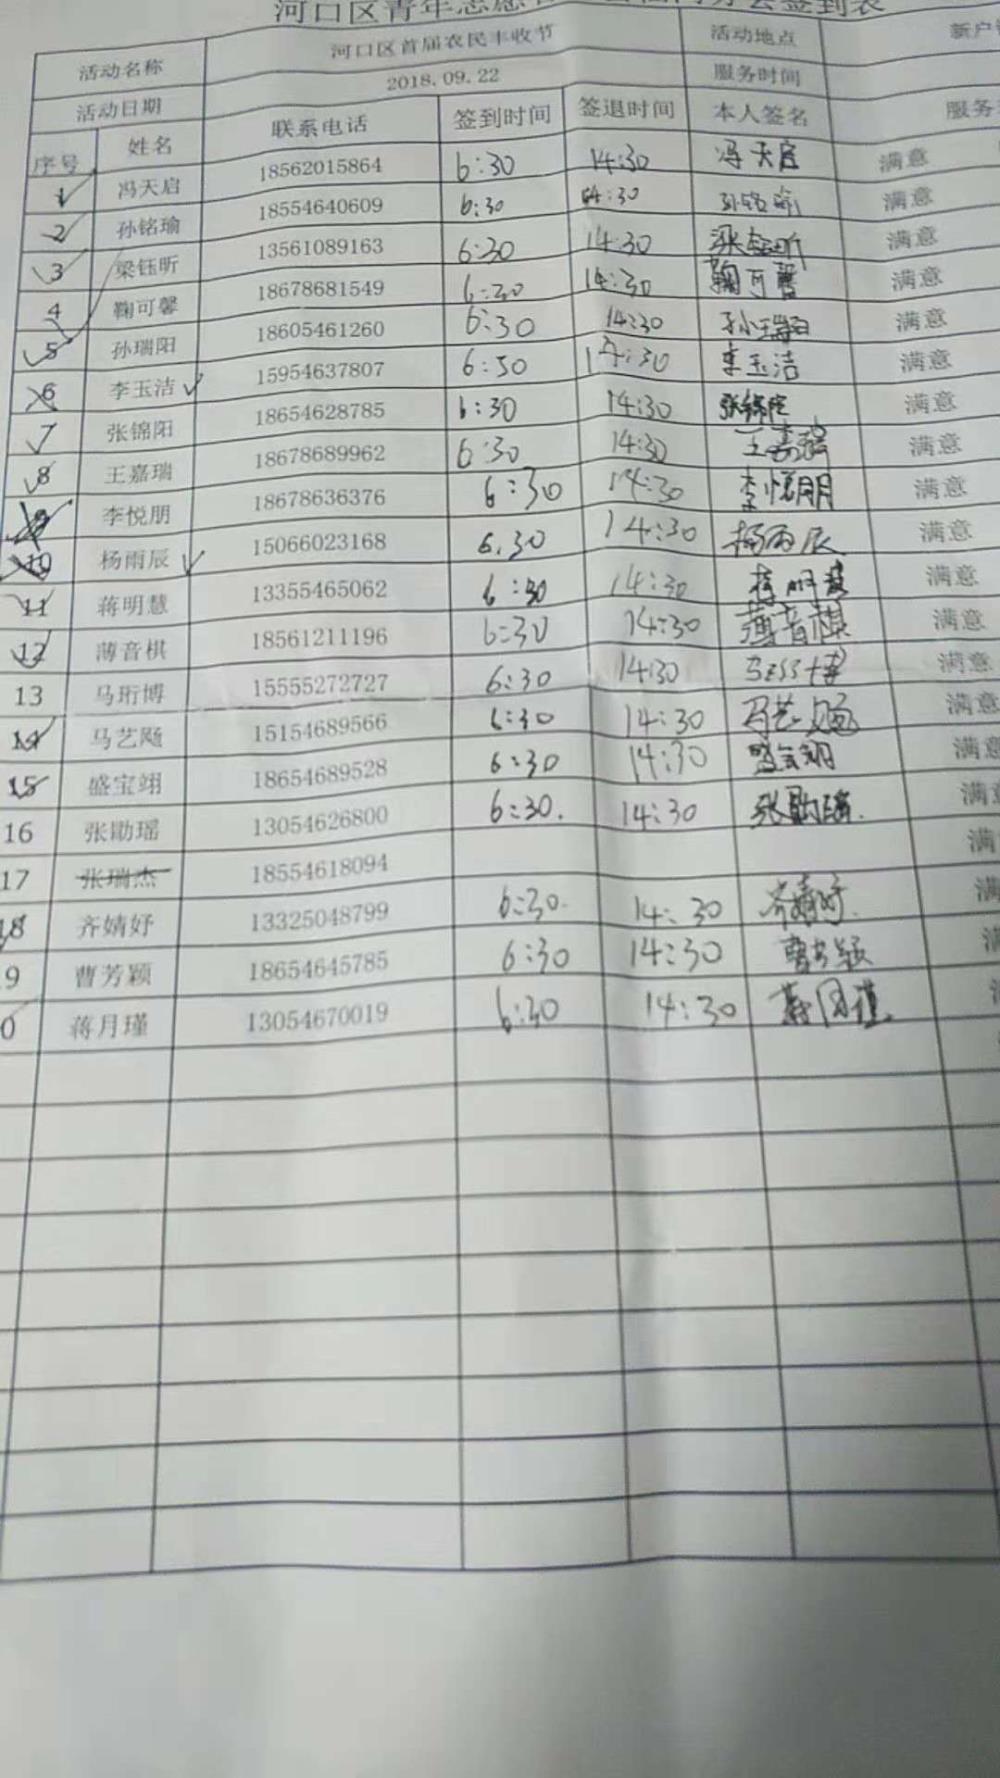 河口区青年志愿者 签到表
活动名称 河口区首届农民丰收节 活动地点 新户
活动日期 2018.09.22 服务时间
序号 姓名 联系电话 签到时间 签退时间 本人签名 服务
1 冯天启 18562015864 6:30 14:30 冯天启 满意
2 孙铭瑜 18554640609 6:30 14:30 孙铭瑜 满意
3 梁钰昕 13561089163 6:30 14:30 梁钰昕 满意
4 鞠可馨 18678681549 6:30 14:30 鞠可馨 满意
5 孙瑞阳 18605461260 6:30 14:30 孙瑞阳 满意
6 李玉洁 15954637807 6:30 14:30 李玉洁 满意
7 张锦阳 18654628785 6:30 14:30 张锦阳 满意
8 王嘉瑞 18678689962 6:30 14:30 王嘉瑞 满意
9 李悦朋 18678636376 6:30 14:30 李悦朋 满意
10 杨雨辰 15066023168 6.30 14:30 杨雨辰 满意
11 蒋明慧 13355465062 6:30 14:30 蒋明慧 满意
12 薄音棋 18561211196 6:30 14:30 薄音棋 满意
13 马珩博 15555272727 6:30 14:30 满意
14 马艺飏 15154689566 6:30 14:30 马艺飏 满意
15 盛宝翊 18654689528 6:30 14:30 盛宝翊 满意
16 张勋瑶 13054626800 6:30. 14:30 张勋瑶. 满意
17 张瑞杰 18554618094 满
18 齐婧妤 13325048799 6:30. 14:30 齐婧妤. 满
9 曹芳颖 18654645785 6:30 14:30 曹芳颖
0 蒋月瑾 13054670019 6:30 14:30 蒋月瑾